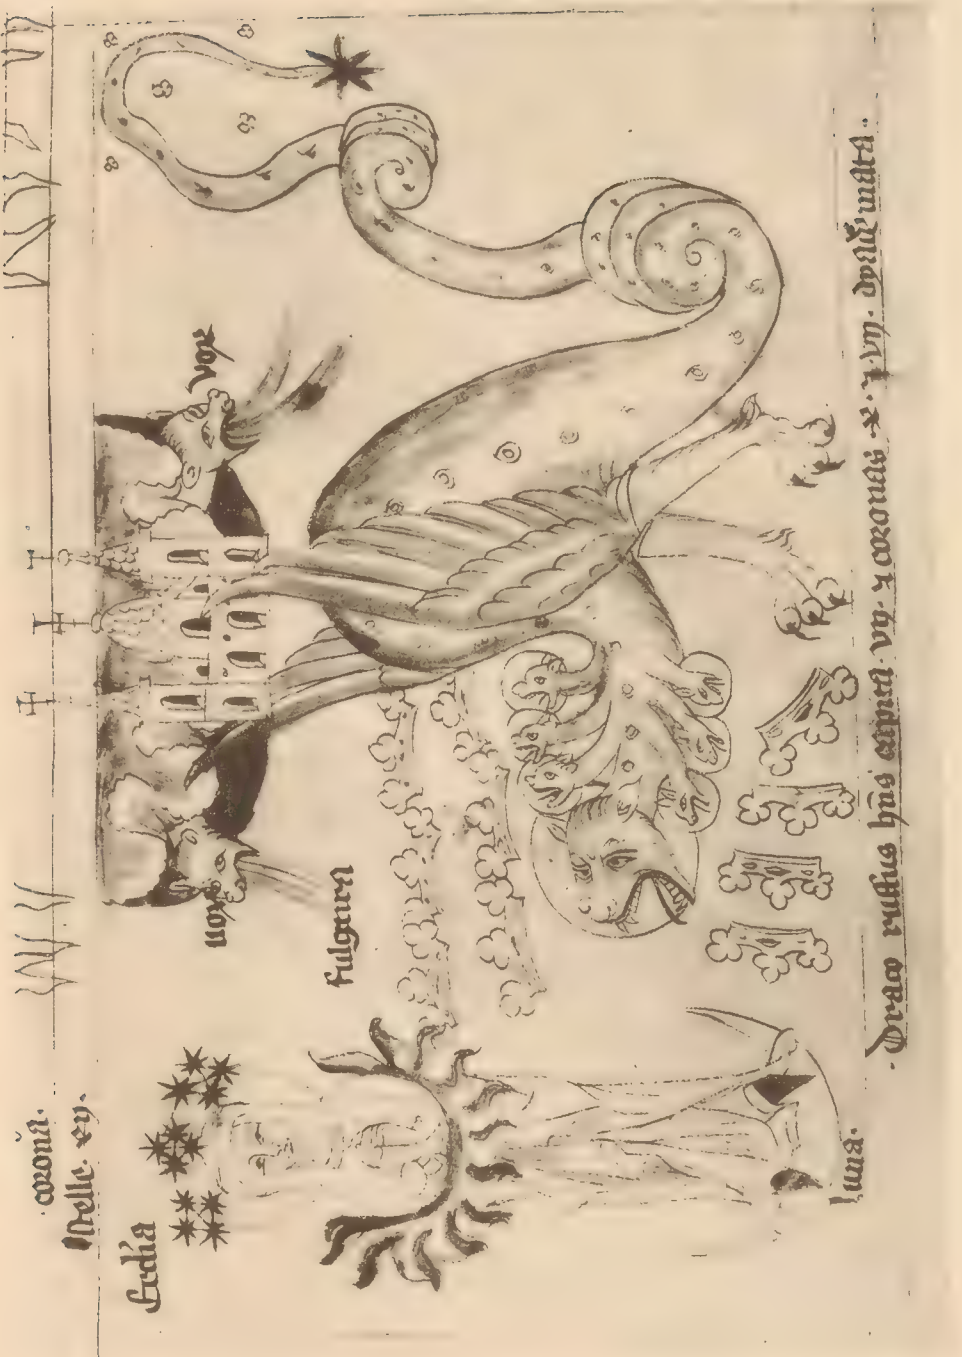 ·coron̄a·
stelle·xij·
Ecclīa
vox
vox
fulgura
luna·
·Draco ruffus hn̄s capita·vij·⁊ coronas·x·⁊·vij·dyademata·